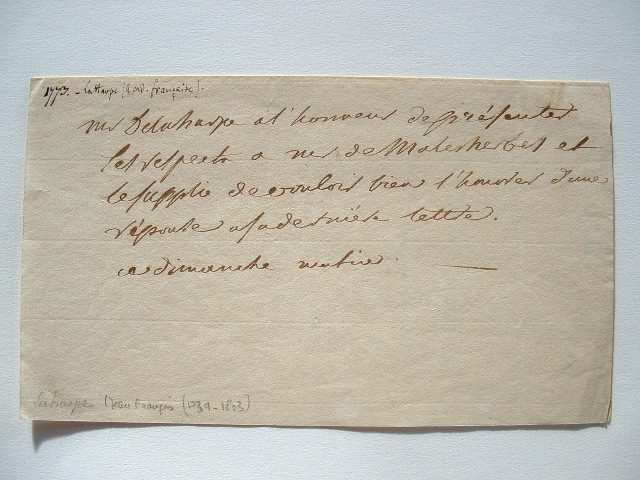 1773. - LaHarpe (acad. française).
mr Delaharpe a l'honneur de présenter
ses respects a mr de Malesherbes et
le supplie de vouloir bien l'honorer d'une
réponse a sa derniére lettre.
ce dimanche matin.
Laharpe (Jean François (1739-1803)